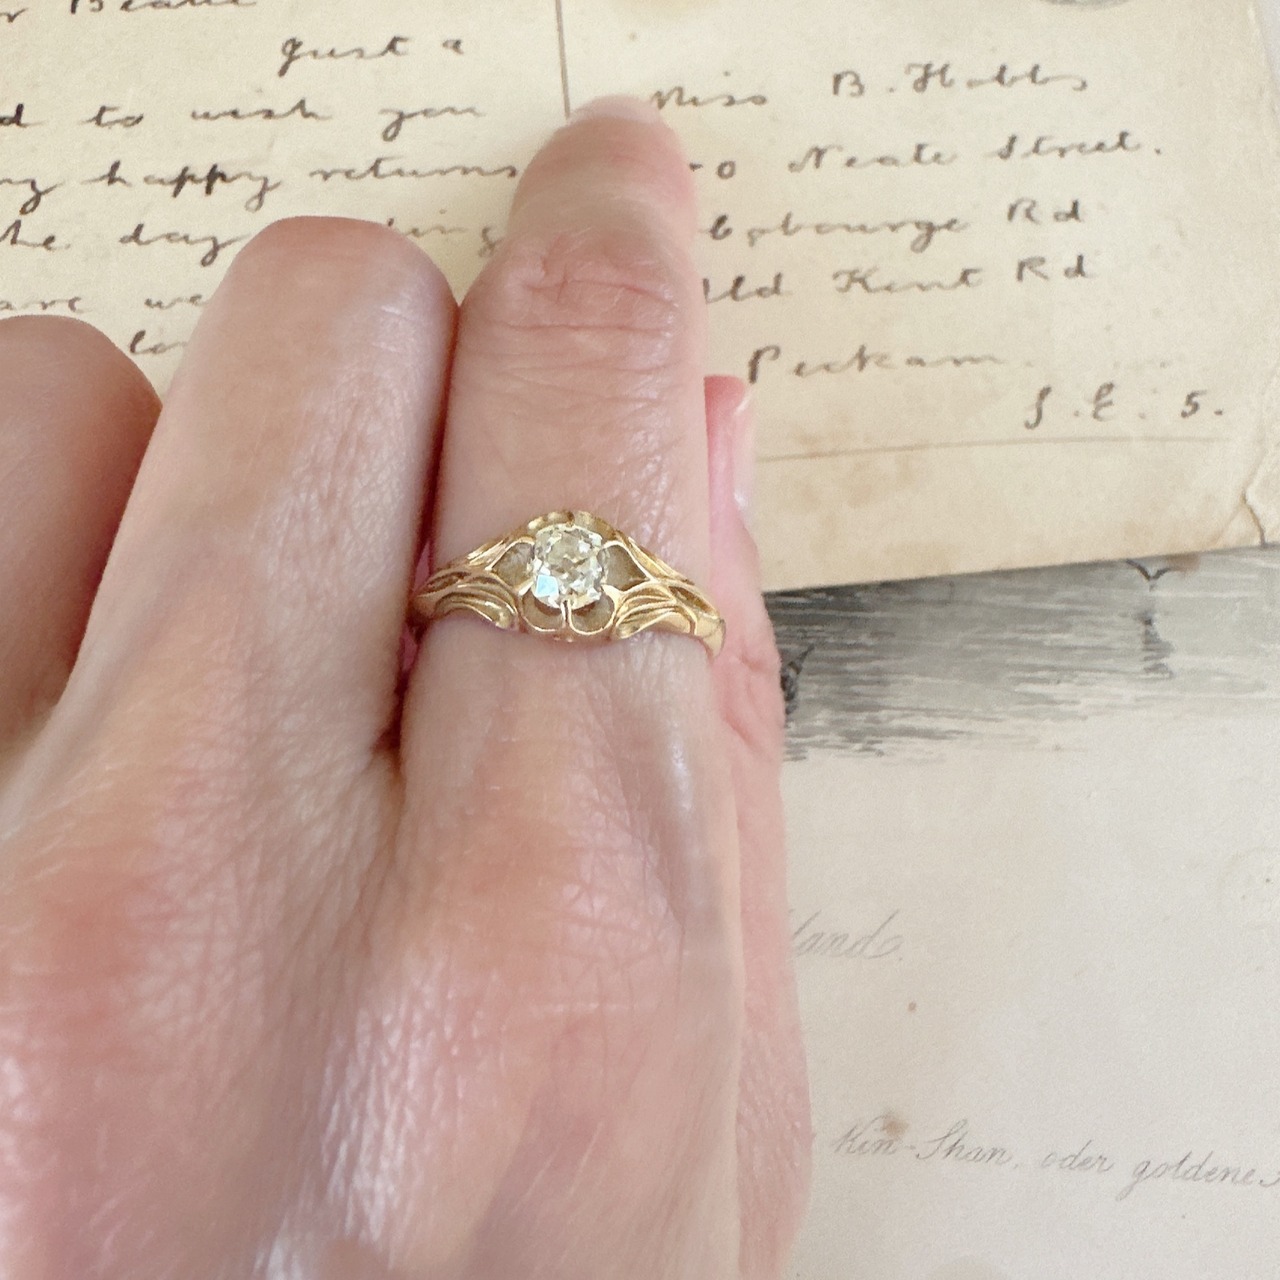 Just a
to wish you
happy returns
the day
are we
Miss B. Hobbs
Neate Street.
Rd
Old Kent Rd
Peckam.
S.E. 5.
land.
Kin-Shan, oder goldene